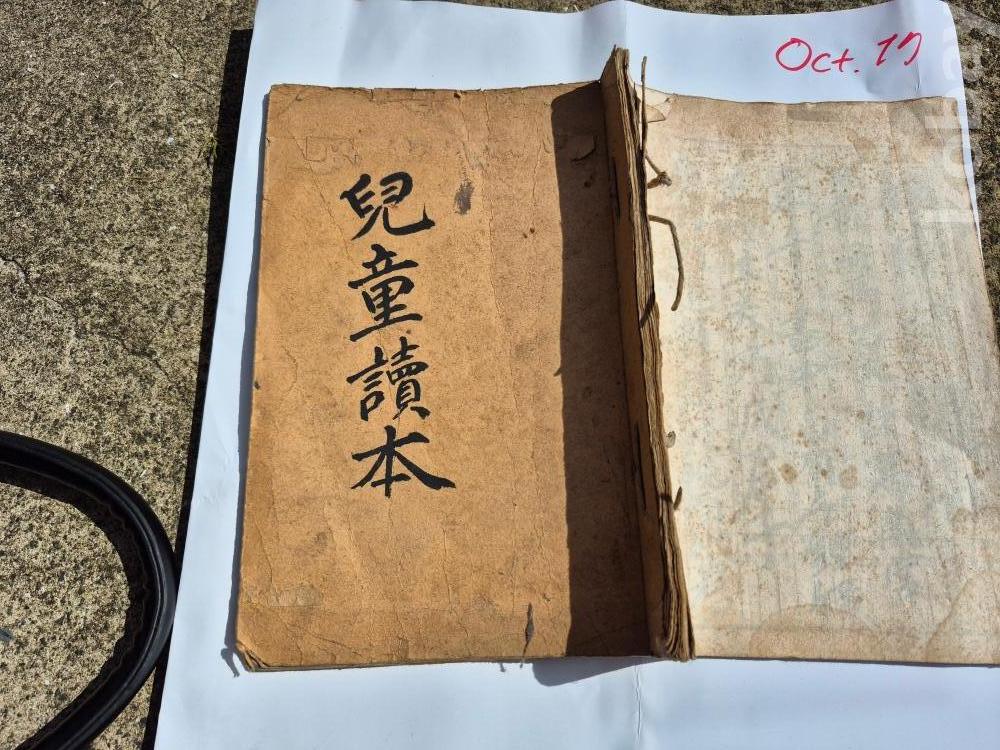 Oct. 17
兒童讀本